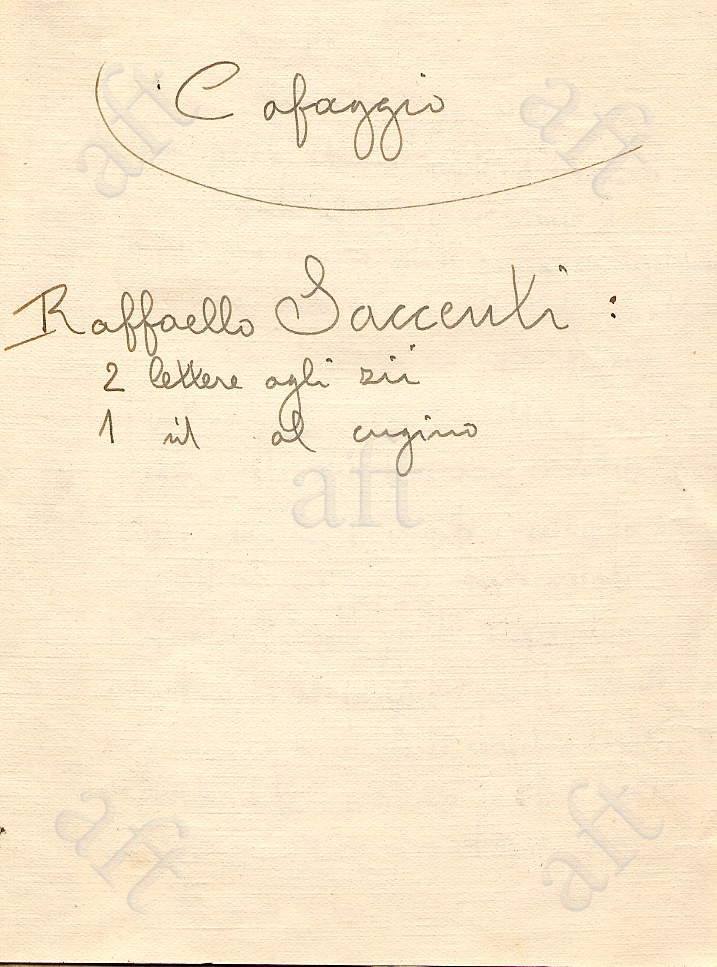 Cafaggio
Raffaello Saccenti:
2 lettere agli zii
1 id al cugino
aft
aft
aft
aft
aft